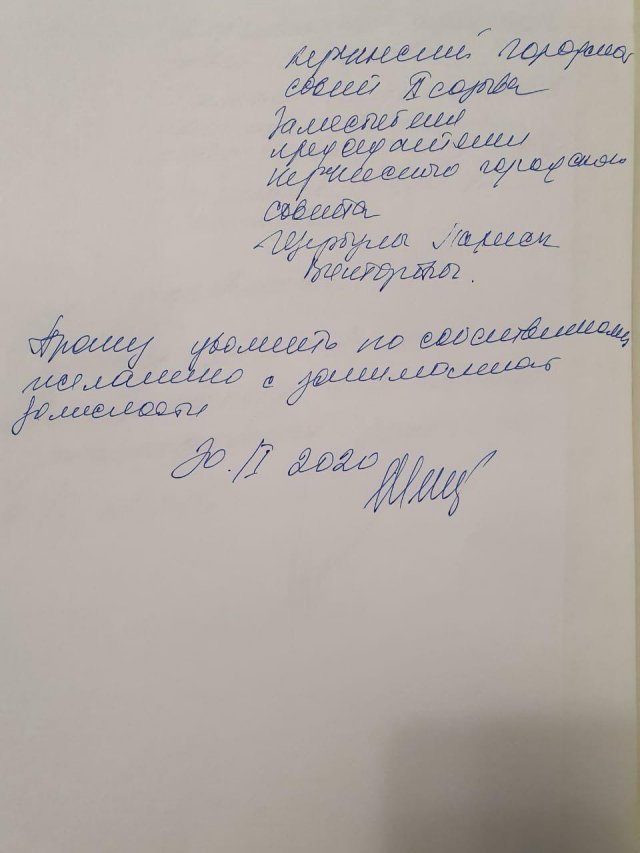 Керченский городской
совет II созыва
Заместителя
председателя
Керченского городского
совета
Щербулы Ларисы
Викторовны.
Прошу уволить по собственному
желанию с занимаемой
должности
30.I 2020